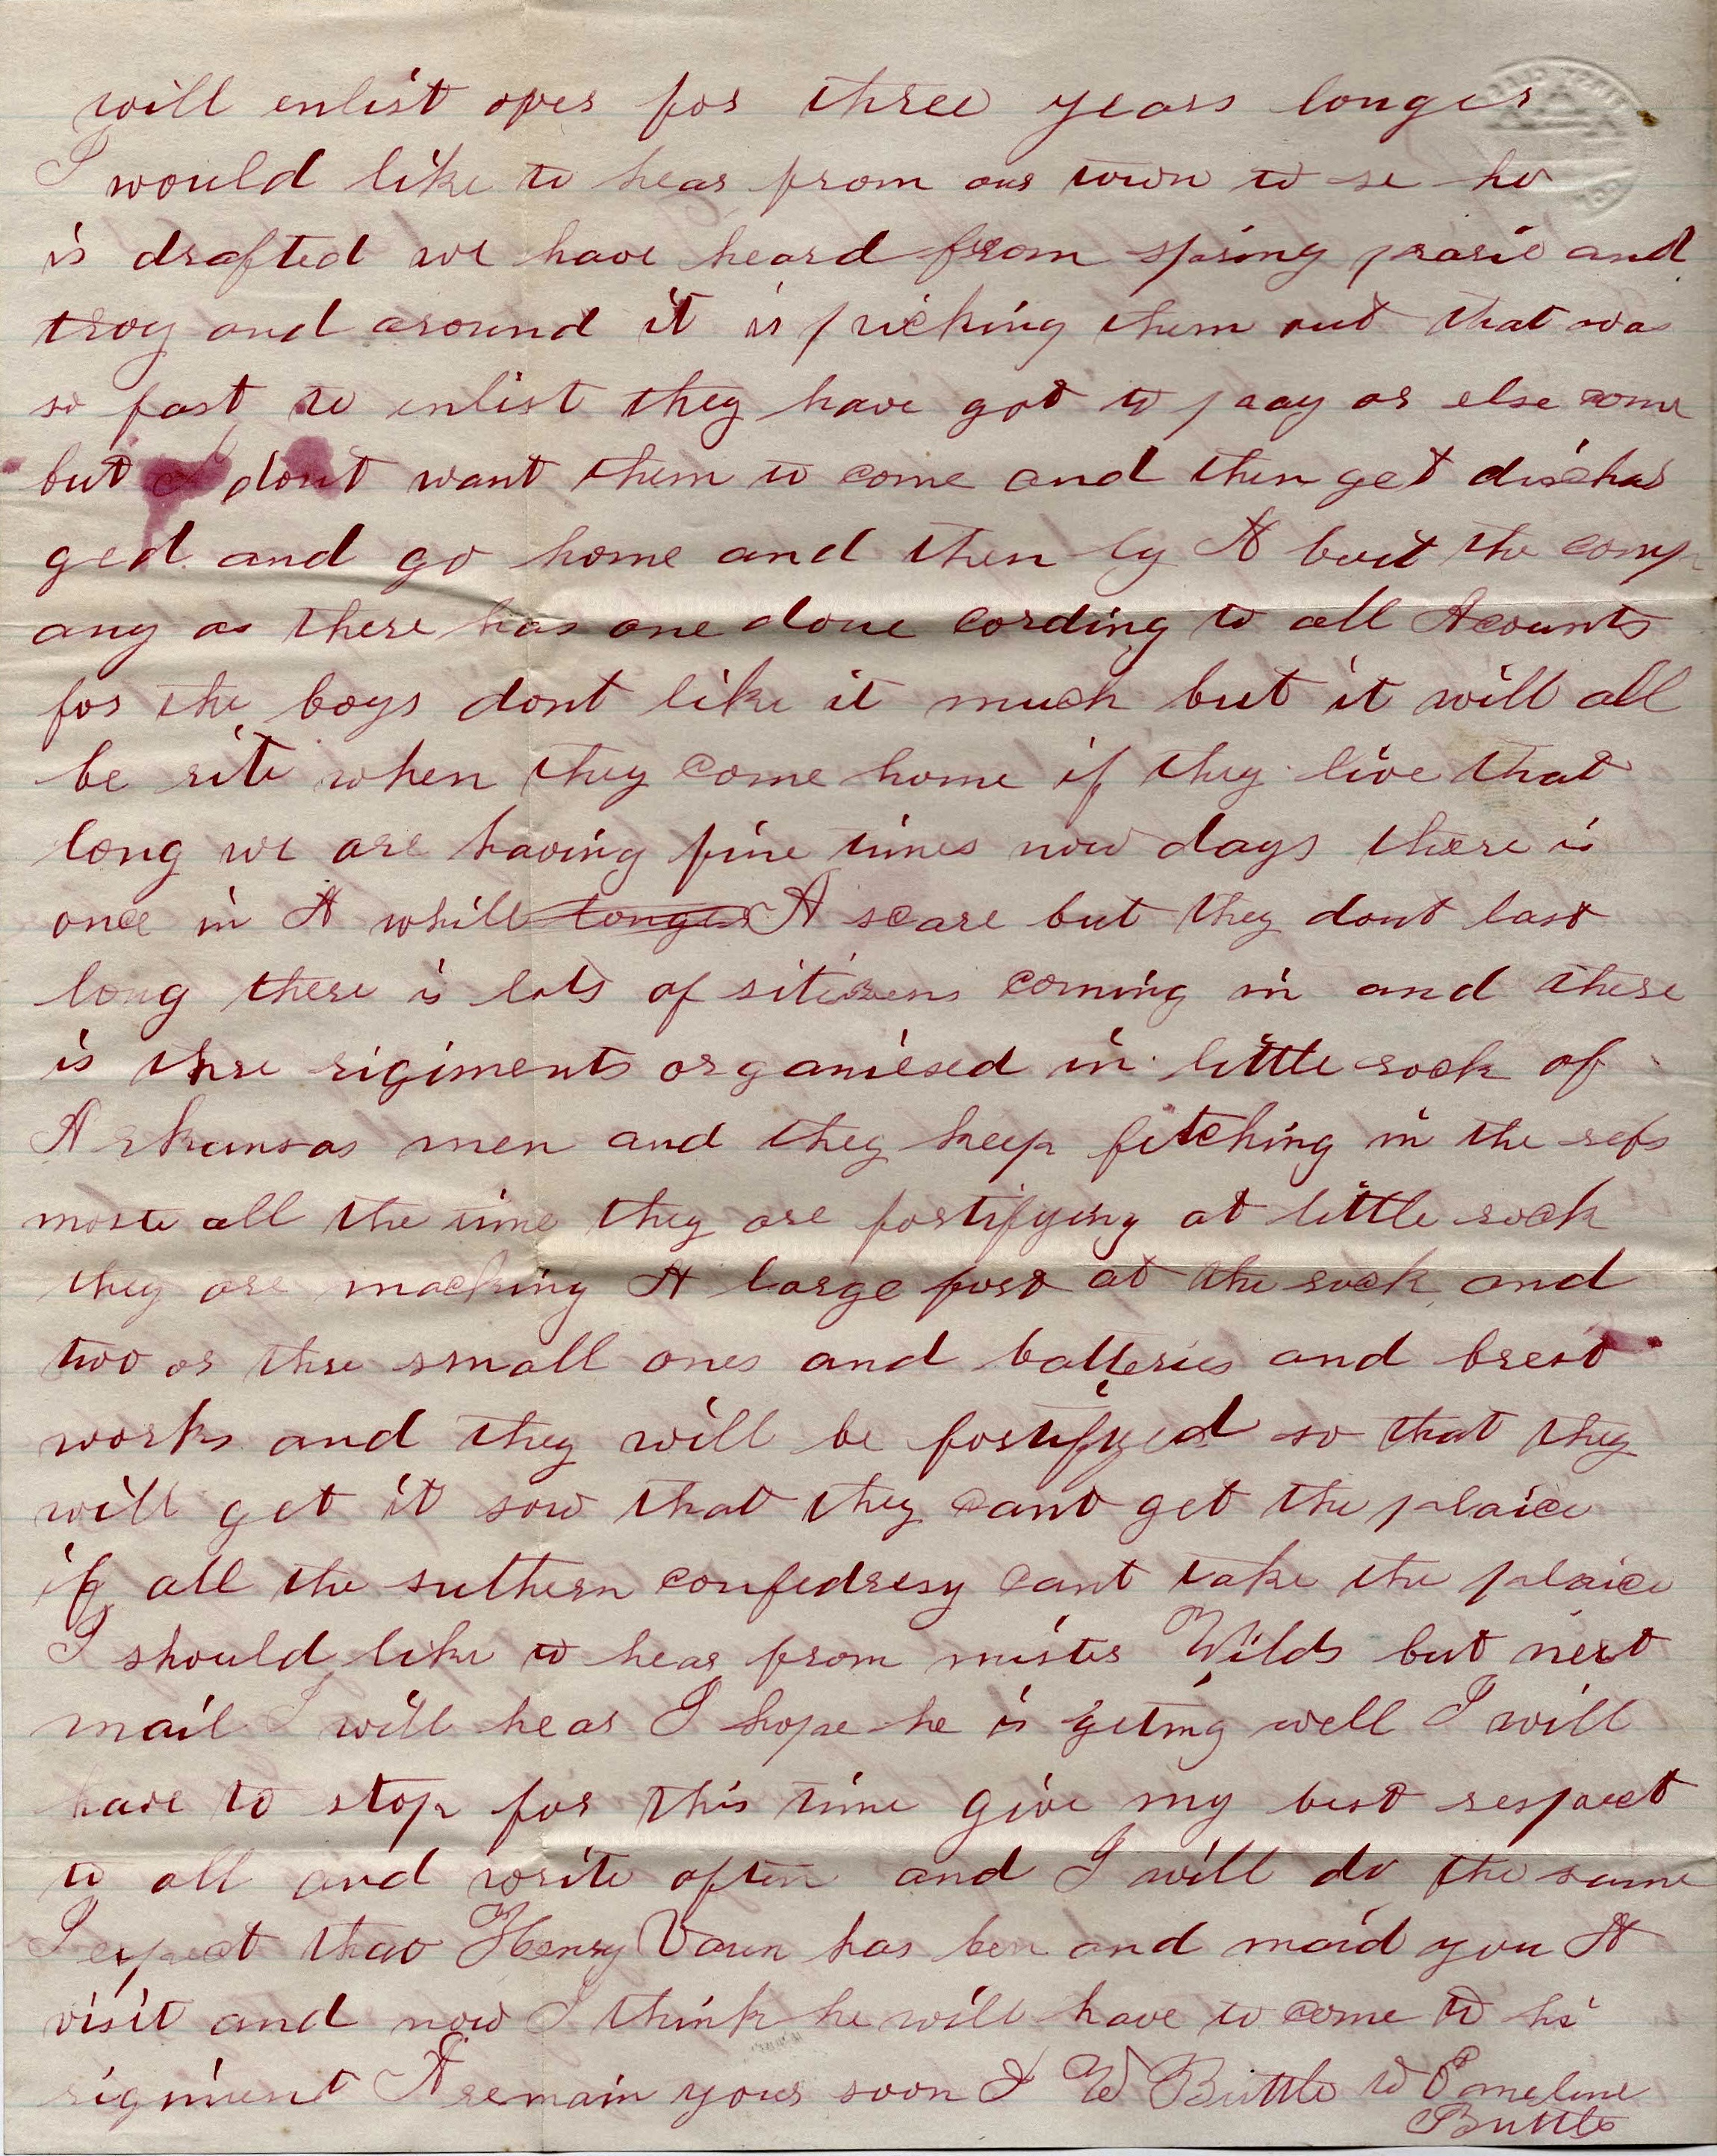 will enlist over for three years longer
I would like to hear from our town to se ho
is drafted we have heard from spring prarie and
troy and around it is pricking them out that was
so fast to enlist they have got to paay or else come
but I dont want them to come and then get dischar
ged and go home and then ly A bout the comp
any as there has one done cording to all Acounts
for the boys dont like it much but it will all
be rite when they come home if they live that
long we are having fine times now days there is
once in A whill longer A scare but they dont last
long there is lots of sitizens coming in and there
is thre rigiments organiesed in little rock of
Arkansas men and they keep fetching in the rebs
moste all the time they are fortifying at little rock
they are macking A large fort at the rock and
two or thre small ones and batteries and brest
works and they will be fortifyed so that they
will get it sow that they cant get the plaice
if all the suthern confedresy cant take the plaice
I should like to hear from mister Wilds but next
mail I will hear I hope he is geting well I will
have to stop for this time give my best respect
to all and write often and I will do the same
I expect that Henry Vaun has ben and maid you A
visit and now I think he will have to come to his
rigiment A remain yours soon I W Buttle to Emeline
Buttle